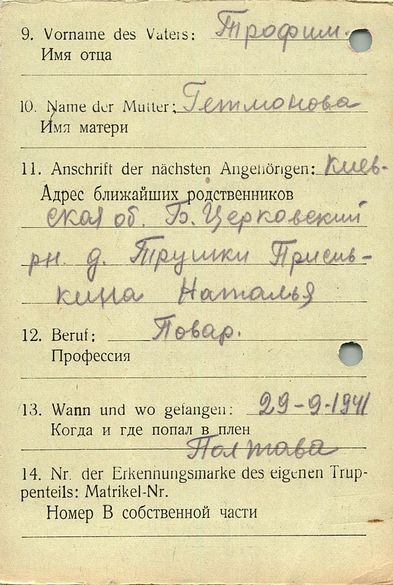 9. Vorname des Vaters: Трофим.
Имя отца
10. Name der Mutter: Гетмонова
Имя матери
11. Anschrift der nächsten Angehörigen: Киев-
Адрес ближайших родственников
ская об. Б. Церковский
рн. д. Трушки Приснь-
кина Наталья
12. Beruf: Повар.
Профессия
13. Wann und wo gefangen: 29-9-1941
Когда и где попал в плен
Полтава
14. Nr. der Erkennungsmarke des eigenen Trup-
penteils: Matrikel-Nr.
Номер В собственной части